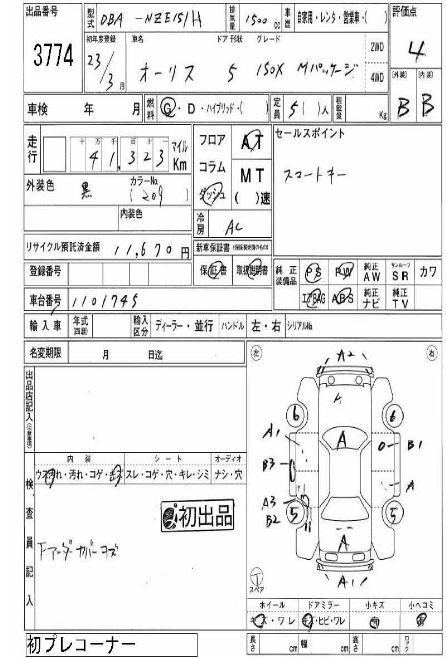 出品番号 3774
型式 DBA - NZE151H 排気量 1500 cc 車歴 自家用・レンタ・営業車・( )
初年度登録 23/3月 車名 オーリス ドア 形状 5 グレード 150X Mパッケージ 2WD 4WD
評価点 4
(外装) B (内装) B
車検 年 月 燃料 G・D・ハイブリッド・( ) 定員 5( )人 積載量 Kg
走行 十万 万 千 百 十 41,323 マイル Km
フロア コラム ダッシュ AT MT ( )速
セールスポイント
スマートキー
外装色 黒 カラーNo. (209)
内装色
冷房 AC
リサイクル預託済金額 11,670 円
新車保証書
保証書 取扱説明書
純正装備品 PS PW 純正AW サンルーフ SR カワ
エアBAG ABS 純正ナビ 純正TV
登録番号
車台番号 1101745
輸入車 年式 輸入区分 ディーラー・並行 ハンドル 左・右 シリアルNo.
名変期限 月 日迄
出品店記入
内装 シート オーディオ
ウス汚れ・汚れ・コゲ・キズ スレ・コゲ・穴・キレ・シミ ナシ・穴
初出品
検査員記入
下アーダーカバーコス
左 右
A2
6 6
A1 A B1
B3 A
A3
B2
5 5
A
A1
T
スペア
ホイール ドアミラー 小キズ 小ヘコミ
キズ・ワレ キズ・ヒビ・ワレ 有 有
長さ cm 幅 cm 高さ cm
初プレコーナー